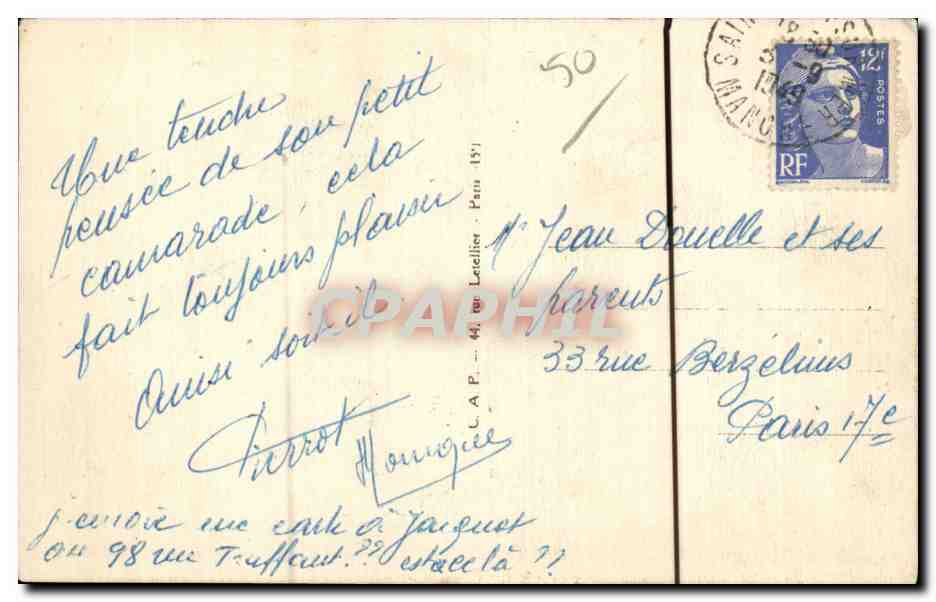 Une tendre
pensée de son petit
camarade, cela
fait toujours plaisir
Ainsi soit-il
Pierrot
Monique
j'envoie une carte à Jacquot
au 98 rue Truffaut?? est-ce là??
50
C.A.P. — 44, rue Letellier - Paris - 15e
SAIN
18 30
3 -9
1949
MANCHE
12F
POSTES
RF
Mr Jean Douelle et ses
parents
33 rue Berzélius
Paris 17e
CPAPHIL